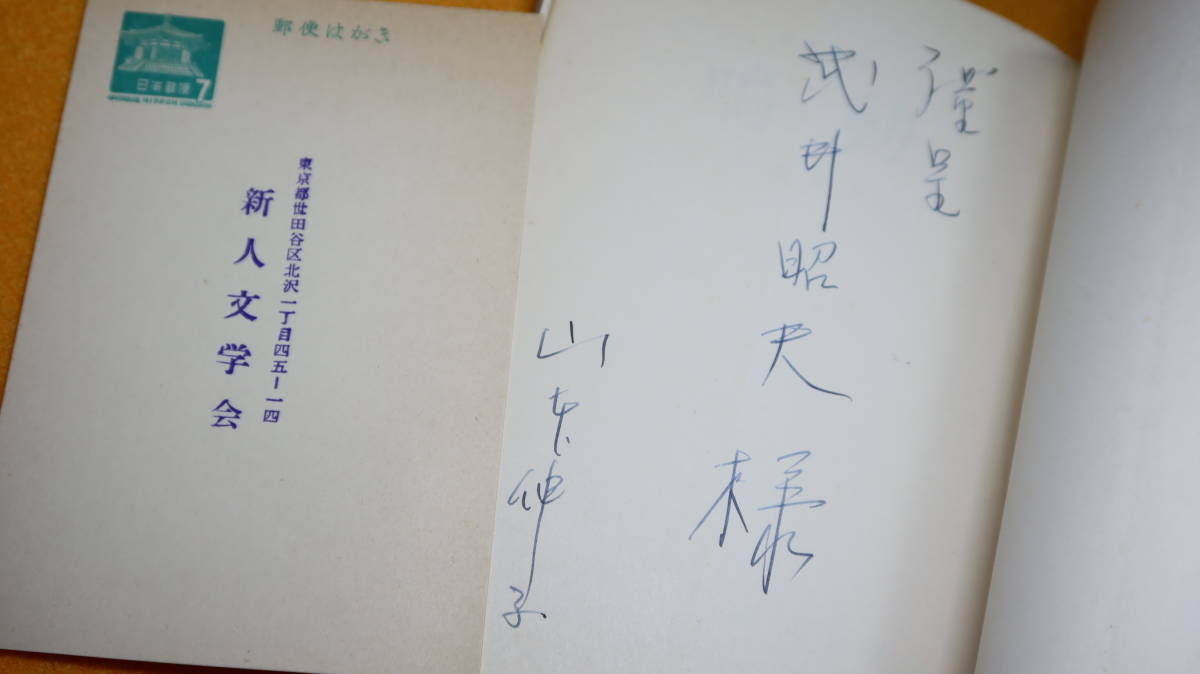 郵便はがき
日本郵便
7
東京都世田谷区北沢一丁目四五ー一四
新人文学会
謹呈
武井昭夫様
山本伸子